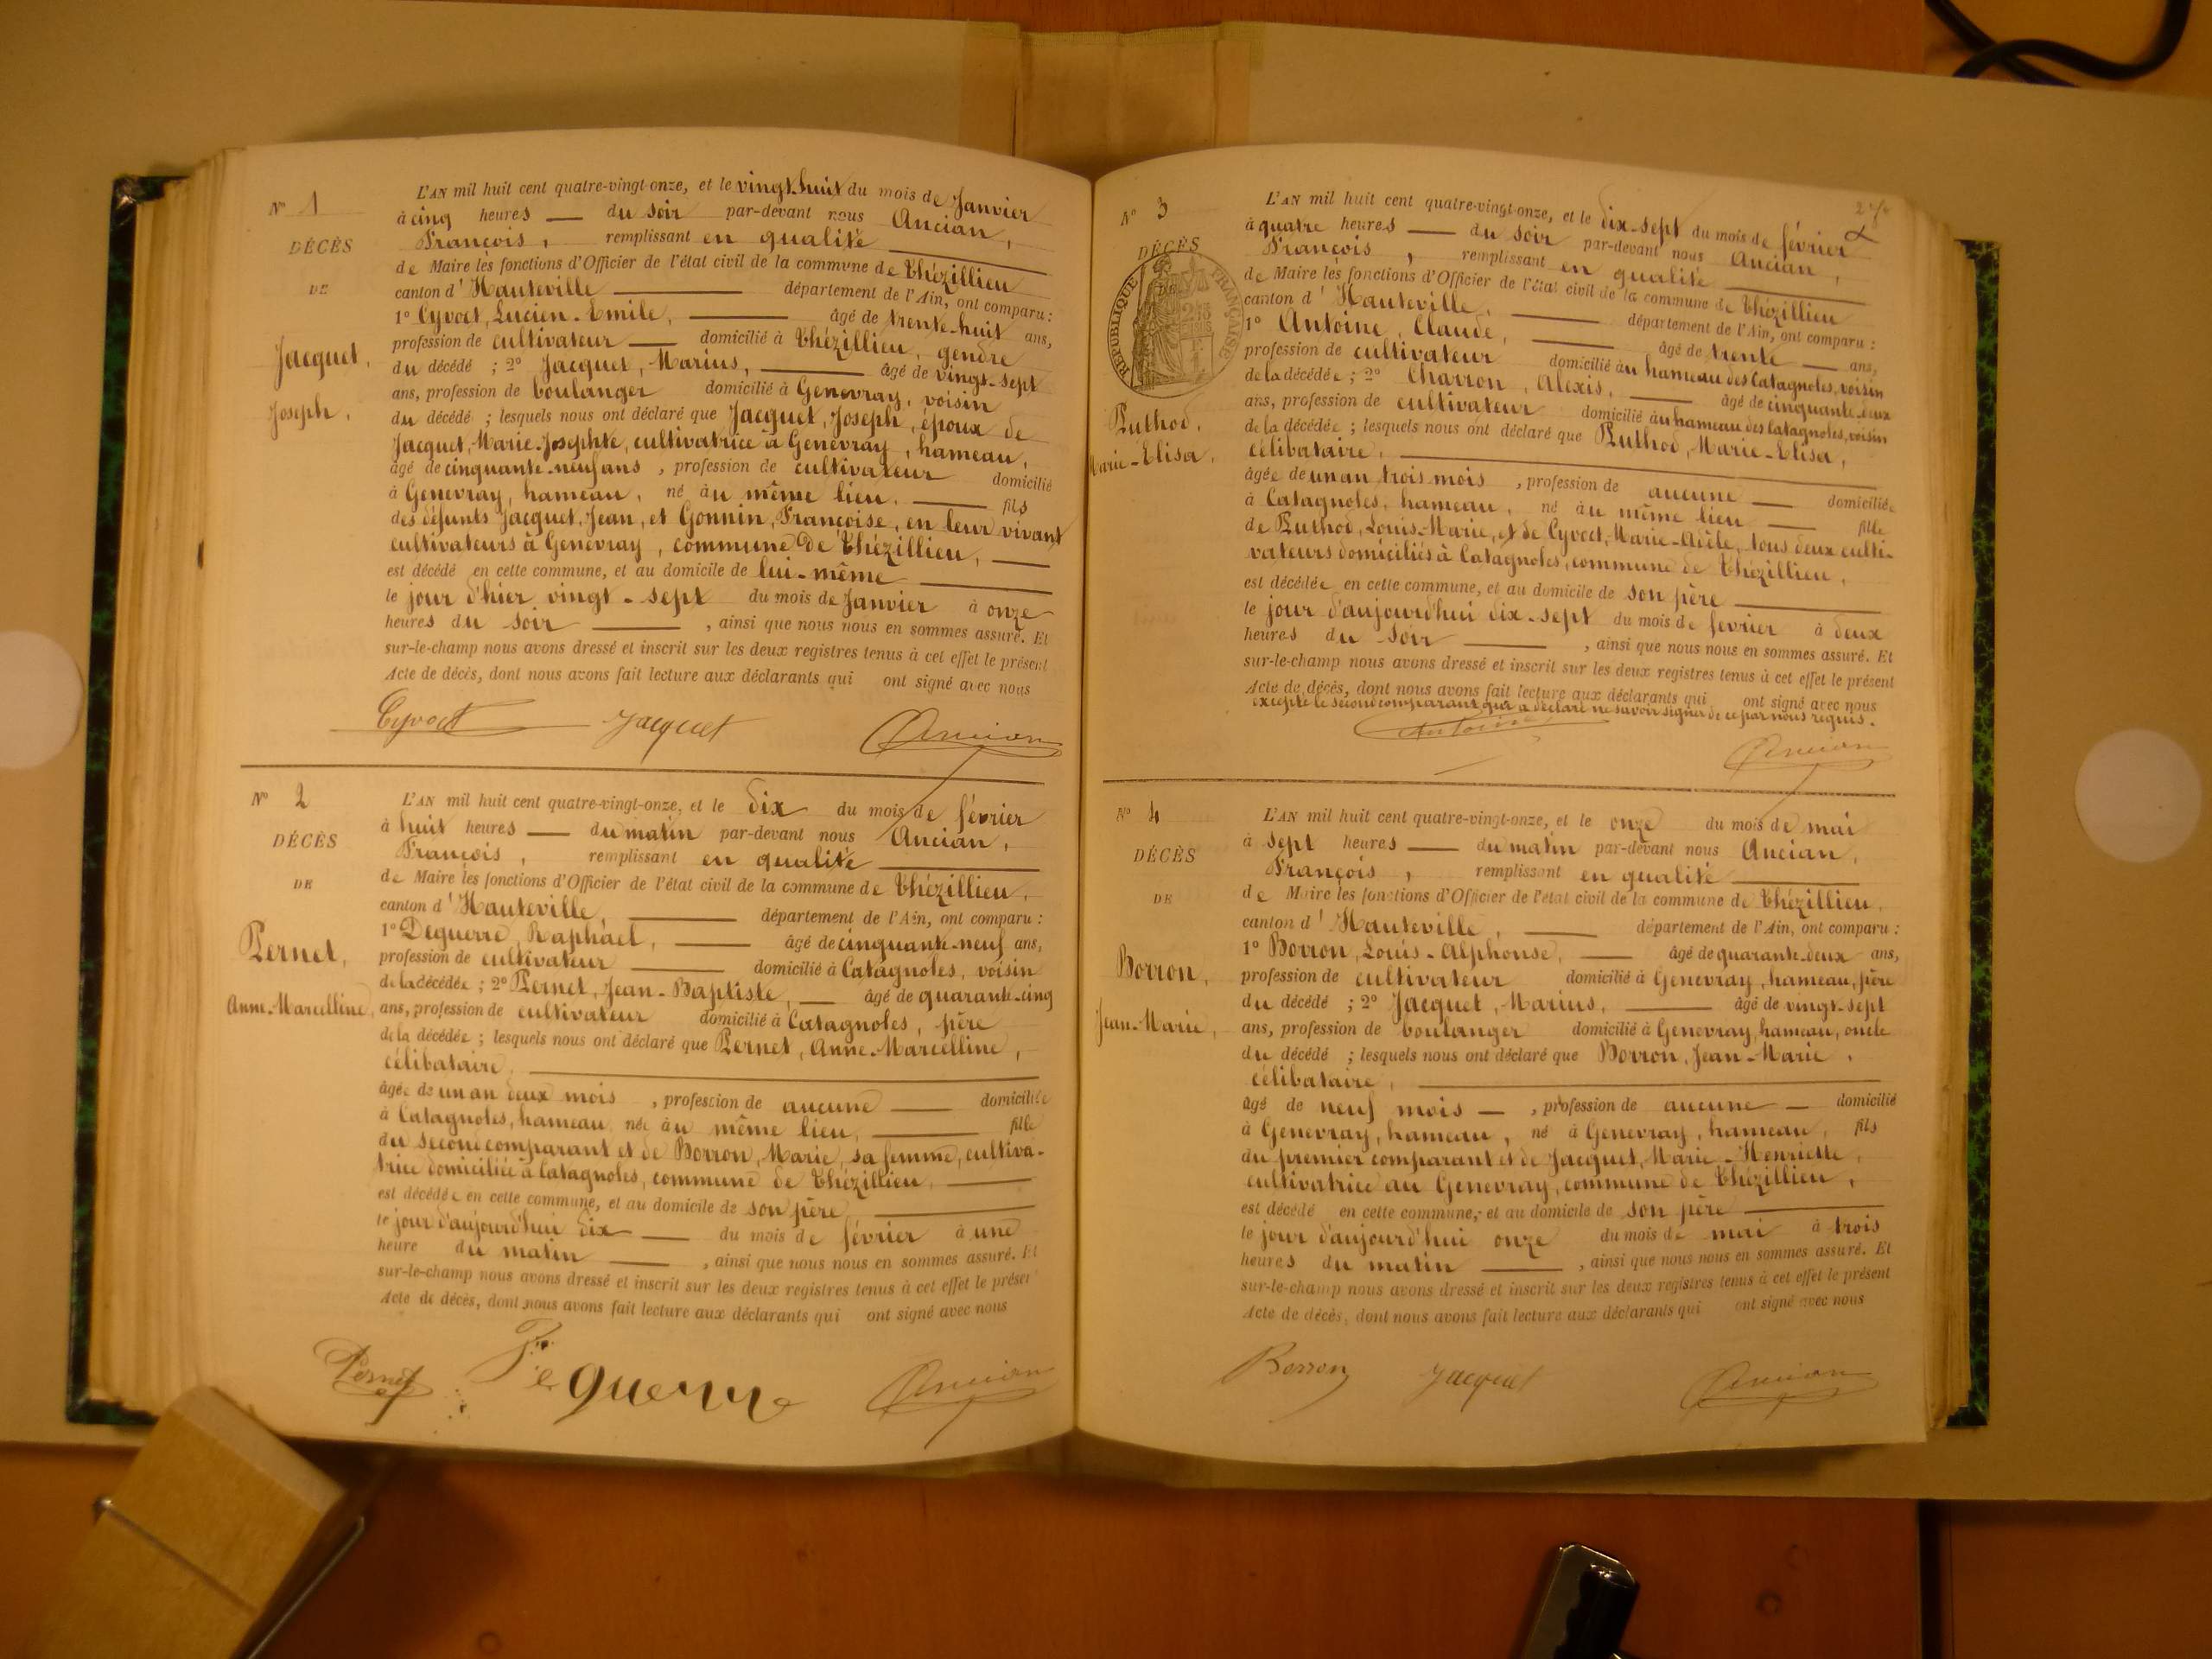 N° 1
DÉCÈS
DE
Jacquet,
Joseph,
L'AN mil huit cent quatre-vingt-onze, et le vingt-huit du mois de Janvier
à cinq heures — du soir par-devant nous Ancian,
François, remplissant en qualité
de Maire les fonctions d'Officier de l'état civil de la commune de Thézillieu
canton d'Hauteville département de l'Ain, ont comparu :
1° Cyvoct, Lucien-Emile, âgé de trente-huit ans,
profession de cultivateur — domicilié à Thézillieu, gendre
du décédé ; 2° Jacquet, Marius, âgé de vingt-sept
ans, profession de boulanger domicilié à Genevray, voisin
du décédé ; lesquels nous ont déclaré que Jacquet, Joseph, époux de
Jacquet, Marie-Josephte, cultivatrice à Genevray, hameau,
âgé de cinquante-neuf ans, profession de cultivateur domicilié
à Genevray, hameau, né au même lieu, fils
des défunts Jacquet, Jean, et Gonnin, Françoise, en leur vivant
cultivateurs à Genevray, commune de Thézillieu,
est décédé en cette commune, et au domicile de lui-même
le jour d'hier vingt-sept du mois de Janvier à onze
heures du soir, ainsi que nous nous en sommes assuré. Et
sur-le-champ nous avons dressé et inscrit sur les deux registres tenus à cet effet le présent
Acte de décès, dont nous avons fait lecture aux déclarants qui ont signé avec nous
Cyvoct Jacquet Ancian
N° 2
DÉCÈS
DE
Pernet,
Anne-Marcelline,
L'AN mil huit cent quatre-vingt-onze, et le dix du mois de février
à huit heures — du matin par-devant nous Ancian,
François, remplissant en qualité
de Maire les fonctions d'Officier de l'état civil de la commune de Thézillieu,
canton d'Hauteville, département de l'Ain, ont comparu :
1° Deguerre, Raphaël, âgé de cinquante-neuf ans,
profession de cultivateur domicilié à Catagnoles, voisin
de la décédée ; 2° Pernet, Jean-Baptiste, — âgé de quarante-cinq
ans, profession de cultivateur domicilié à Catagnoles, père
de la décédée ; lesquels nous ont déclaré que Pernet, Anne-Marcelline,
célibataire,
âgée de un an deux mois, profession de aucune — domiciliée
à Catagnoles, hameau, née au même lieu, fille
du second comparant et de Borron, Marie, sa femme, cultiva-
trice domiciliée à Catagnoles, commune de Thézillieu,
est décédée en cette commune, et au domicile de son père
le jour d'aujourd'hui dix — du mois de février à une
heure du matin, ainsi que nous nous en sommes assuré. Et
sur-le-champ nous avons dressé et inscrit sur les deux registres tenus à cet effet le présen
Acte de décès, dont nous avons fait lecture aux déclarants qui ont signé avec nous
Pernet Deguerre Ancian
N° 3
DÉCÈS
RÉPUBLIQUE FRANÇAISE
Puthod,
Marie-Elisa,
L'AN mil huit cent quatre-vingt-onze, et le dix-sept du mois de février
à quatre heures — du soir par-devant nous Ancian,
François, remplissant en qualité
de Maire les fonctions d'Officier de l'état civil de la commune de Thézillieu
canton d'Hauteville, département de l'Ain, ont comparu :
1° Antoine, Claude, âgé de trente — ans,
profession de cultivateur domicilié au hameau des Catagnoles, voisin
de la décédée ; 2° Charron, Alexis, âgé de cinquante-deux
ans, profession de cultivateur domicilié au hameau des Catagnoles, voisin
de la décédée ; lesquels nous ont déclaré que Puthod, Marie-Elisa,
célibataire,
âgée de un an trois mois, profession de aucune — domiciliée
à Catagnoles, hameau, né au même lieu — fille
de Puthod, Louis-Marie, et de Cyvoct, Marie-Adèle, tous deux culti-
vateurs domiciliés à Catagnoles, commune de Thézillieu,
est décédée en cette commune, et au domicile de son père
le jour d'aujourd'hui dix-sept du mois de février à deux
heures du soir, ainsi que nous nous en sommes assuré. Et
sur-le-champ nous avons dressé et inscrit sur les deux registres tenus à cet effet le présent
Acte de décès, dont nous avons fait lecture aux déclarants qui ont signé avec nous
excepté le second comparant qui a déclaré ne savoir signer de ce par nous requis.
Antoine Ancian
N° 4
DÉCÈS
DE
Borron,
Jean-Marie,
L'AN mil huit cent quatre-vingt-onze, et le onze du mois de mai
à sept heures — du matin par-devant nous Ancian,
François, remplissant en qualité
de Maire les fonctions d'Officier de l'état civil de la commune de Thézillieu,
canton d'Hauteville, département de l'Ain, ont comparu :
1° Borron, Louis-Alphonse, — âgé de quarante-deux ans,
profession de cultivateur domicilié à Genevray, hameau, père
du décédé ; 2° Jacquet, Marius, âgé de vingt-sept
ans, profession de boulanger domicilié à Genevray, hameau, oncle
du décédé ; lesquels nous ont déclaré que Borron, Jean-Marie,
célibataire,
âgé de neuf mois —, profession de aucune — domicilié
à Genevray, hameau, né à Genevray, hameau, fils
du premier comparant et de Jacquet, Marie-Henriette,
cultivatrice au Genevray, commune de Thézillieu,
est décédé en cette commune, et au domicile de son père
le jour d'aujourd'hui onze du mois de mai à trois
heures du matin, ainsi que nous nous en sommes assuré. Et
sur-le-champ nous avons dressé et inscrit sur les deux registres tenus à cet effet le présent
Acte de décès, dont nous avons fait lecture aux déclarants qui ont signé avec nous
Borron Jacquet Ancian